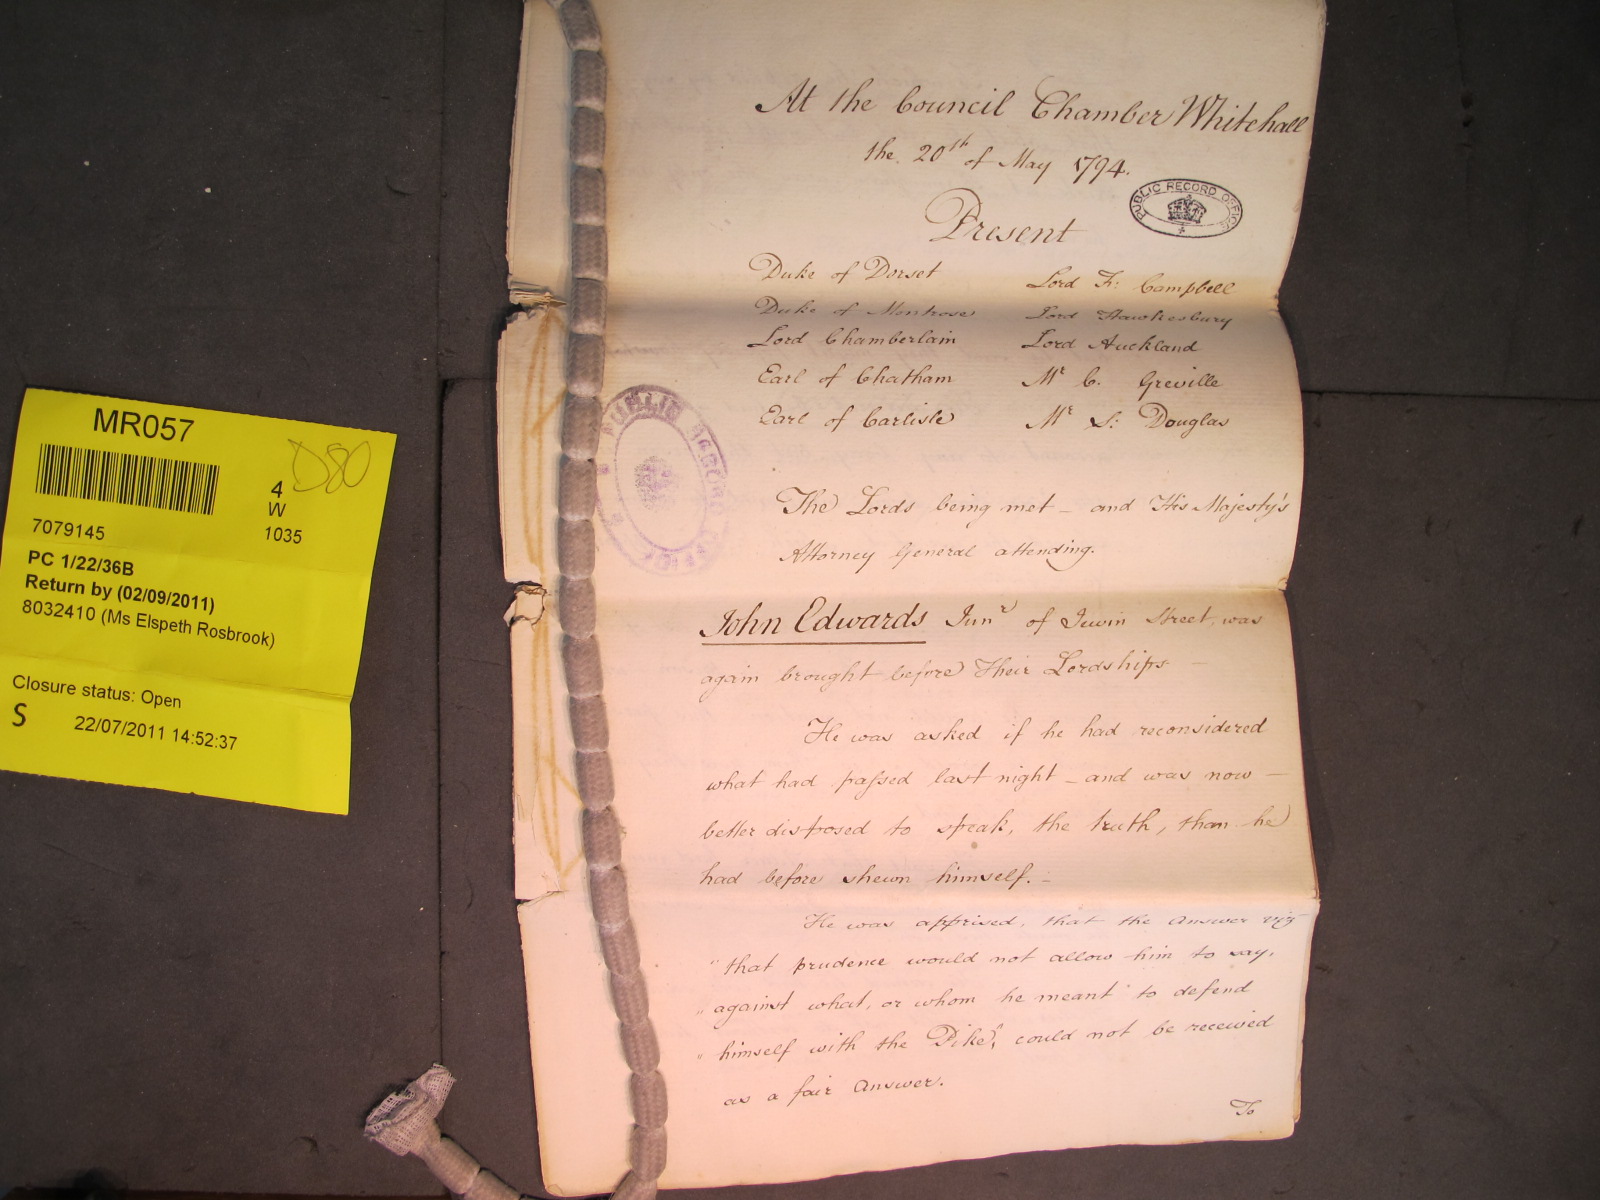 At the Council Chamber Whitehall
the 20th of May 1794.
PUBLIC RECORD OFFICE
Present
Duke of Dorset
Duke of Montrose
Lord Chamberlain
Earl of Chatham
Earl of Carlisle
Lord Fr: Campbell
Lord Hawkesbury
Lord Auckland
Mr C. Greville
Mr S: Douglas
PUBLIC RECORD OFFICE
The Lords being met – and His Majesty's
Attorney General attending.
John Edwards Junr of Jewin Street, was
again brought before Their Lordships –
He was asked if he had reconsidered
what had passed last night – and was now –
better disposed to speak, the truth, than he
had before shewn himself. –
He was apprised, that the Answer viz
" that prudence would not allow him to say,
" against what, or whom he meant to defend
" himself with the Pike", could not be received
as a fair Answer.
To
MR057
D80
4
W
7079145
1035
PC 1/22/36B
Return by (02/09/2011)
8032410 (Ms Elspeth Rosbrook)
Closure status: Open
S
22/07/2011 14:52:37